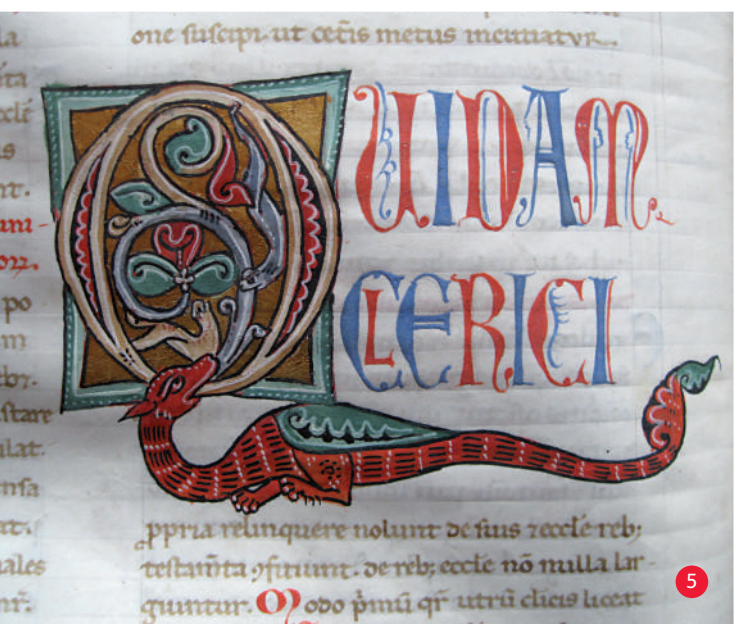 la
nt.
po
stare
at.
one suscipi. ut cet̄is metus incutiatur.
QUIDAM.
CLERICI
ꝓpria relinquere nolunt de suis ⁊ eccl̄e reb;
testam̄ta ꝯficiunt. de reb; eccl̄e nō nulla lar-
guntur. Modo pͥmū qr̄ utrū cl̄icis liceat
5